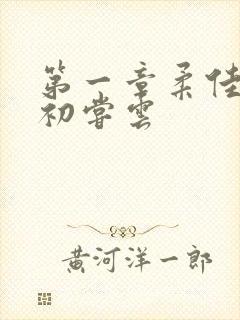 第一章柔佳
初尝云
黄河洋一郎